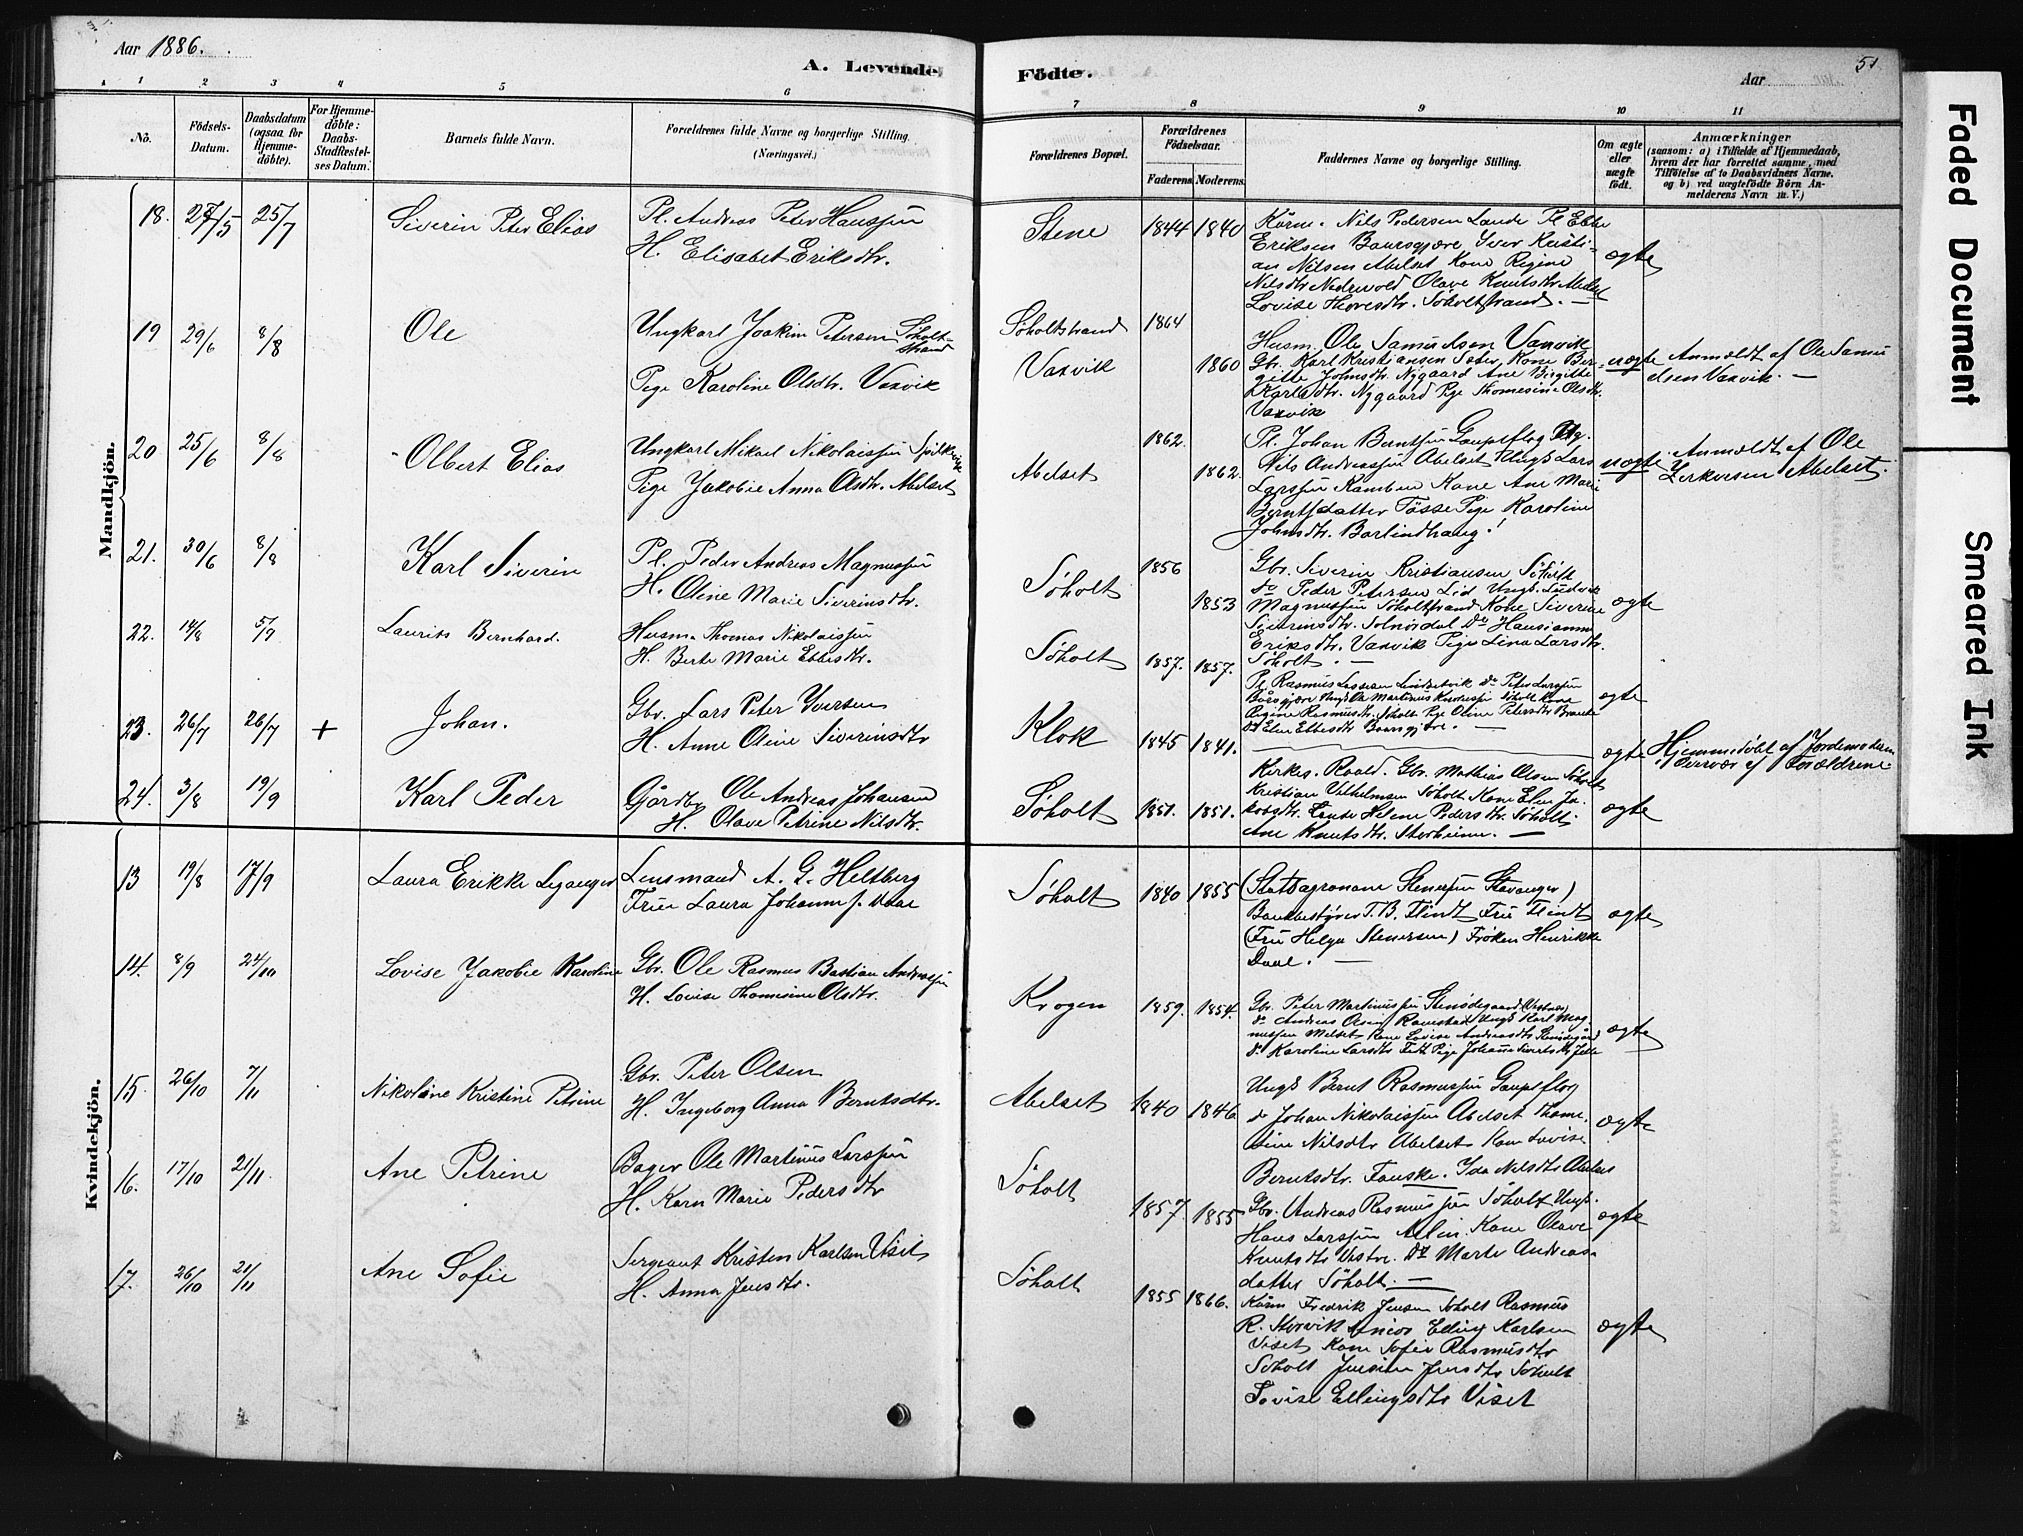 Aar 1886.
A. Levende
Födte.
Aar
51
1 2 3 4 5 6 7 8 9 10 11
No.
Födsels-
Datum.
Daabsdatum
(ogsaa for
Hjemme-
döbte).
For Hjemme-
döbte:
Daabs-
Stadfæstel-
ses Datum.
Barnets fulde Navn.
Forældrenes fulde Navne og borgerlige Stilling.
(Næringsvei.)
Forældrenes Bopæl.
Forældrenes
Födselsaar.
Faderens. Moderens.
Faddernes Navne og borgerlige Stilling.
Om ægte
eller
uægte
födt.
Anmærkninger
(saasom: a) i Tilfælde af Hjemmedaab,
hvem der har forrettet samme, med
Tilföielse af to Daabsvidners Navne.
og b) ved uægtefödte Börn An-
melderens Navn m. V.)
Mandkjön.
18. 27/5 25/7 Siverin Peter Elias
Pl. Andreas Peter Hanssen
H. Elisabet Eriksdtr.
Stene 1844 1840
Nils Pedersen Lande Pl. Ebbe
Eriksen Baursgjære Iver Kristi-
an Nilsen Abelset Kone Regine
Nilsdtr Nedrevold Olave Knutsdtr Abelset
Lovise Thoresdtr. Søholtstrand. —
ægte
19 29/6 8/8 Ole
Ungkarl Joakim Petersen Søholt-
strand
Pige Karoline Olsdtr. Vaxvik
Søholtstrand 1864
Vaxvik 1860
Husm. Ole Samuelsen Vaxvik
Gbr. Karl Kristiansen Sæter, Kone Ber-
gitte Johnsdtr. Nygaard Ane Birgitte
Karlsdtr. Nygaard Pige Thomesine Olsdtr.
Vaxvik
uægte
Anmeldt af Ole Samu
elsen Vaxvik. —
20 25/6 8/8 Olbert Elias
Ungkarl Mikael Nikolaissen Spilkevig
Pige Jakobie Anna Olsdtr. Abelset
Abelset 1862. 1862
Pl. Johan Berntsen Gaupsflog Ug.
Nils Andreassen Abelset Ungk Lars
Larssen Kamben Kone Ane Marie
Berntsdatter Tösse Pige Karoline
Johnsdtr. Barlindhaug!
uægte
Anmeldt af Ole
Zerkersen Abelset.
21. 30/6 8/8 Karl Siverin
Pl. Peder Andreas Magnussen
H. Oline Marie Siverinsdtr.
Søholt 1856 1853
Gbr. Siverin Kristiansen Søholt
do Peder Petersen Lid Ungk. Ludvik
Magnussen Søholtstrand Kone Siverine
Siverinsdtr. Solnørdal Do Hansianna
Eriksdtr. Vaxvik Pige Lina Larsdtr.
Søholt. —
ægte
22. 14/8 5/9 Laurits Bernhard.
Husm. Thomas Nikolaissen
H. Berte Marie Ebbesdtr.
Søholt 1857. 1857.
Pl. Rasmus Lassesen Lindsetvik do Peter Larssen
Regine Rasmusdtr. Søholt Pige Oline Petersdtr
do Elen Ebbesdtr Baursgjøre. —
ægte
23. 26/7 26/7 + Johan.
Gbr. Lars Peter Iversen
H. Anne Oline Siverinsdtr
Klok 1845 1841.
ægte
Hjemmedøbt af Jordemoderen
Overvær af Forældrene
24. 3/8 19/9 Karl Peder
Gårdbr. Ole Andreas Johansen
H. Olave Petrine Nilsdtr.
Søholt 1851. 1851.
Kirkes. Roald. Gbr. Mathias Olsen Søholt
Kristian Vilhelmsen Søholt Kone Elen Ja-
kobsdtr. Lande Helene Pedersdtr. Søholt.
Ane Knutsdtr. —
ægte
Kvindekjön.
13 19/8 17/9 Laura Erikke Leganger
Lensmand A. G. Heltberg
Frue Laura Johanne f. Daae
Søholt 1840 1855
(Statsagronom Stenersen Stavanger)
Bankbestyrer T. B. Flindt Fru Flindt
(Fru Helga Stenersen) Frøken Henrikke
Daae. —
ægte
14. 8/9 24/10 Lovise Jakobie Karoline
Gbr. Ole Rasmus Bastian Andreassen
H. Lovise Thomesine Olsdtr.
Krogen 1859. 1854.
Gbr. Peter Martinussen Stensdegaard (Vestnes)
do Andreas Olsen Ramstad Ungk Karl Mag
nussen Melset Kone Lovise Andreasdtr Stensdegård
do Karoline Larsdtr Pige Johanne Sivertsdtr
ægte
15. 26/10 7/11 Nikoline Kristine Petrine
Gbr. Peter Olsen
H. Ingeborg Anna Berntsdtr.
Abelset 1840 1846
Ungk Bernt Rasmussen Gaupsflog
do Johan Nikolaissen Abelset Thome-
sine Nilsdtr Abelset Kone Lovise
Berntsdtr. Fauske. Ida Nilsdtr Abelset
ægte
16. 17/10 21/11. Ane Petrine
Bager Ole Martinus Larssen
H. Karn Marie Pedersdtr
Søholt 1857. 1855
Gbr. Andreas Rasmussen Søholt Ungk.
Hans Larssen Kone Olave
Knutsdtr Do Marte Andreas-
datter Søholt. —
ægte
17. 26/10 21/11 Ane Sofie
Sergeant Kristen Karlsen Viset
H. Anna Jensdtr.
Søholt 1855 1866.
Fredrik Jensen Søholt Rasmus
R. Storvik Elling Karlsen
Viset Kone Sofie Rasmusdtr
Søholt Jensine Jensdtr Søholt
Lovise Ellingsdtr Viset
ægte
Faded Document
Smeared Ink